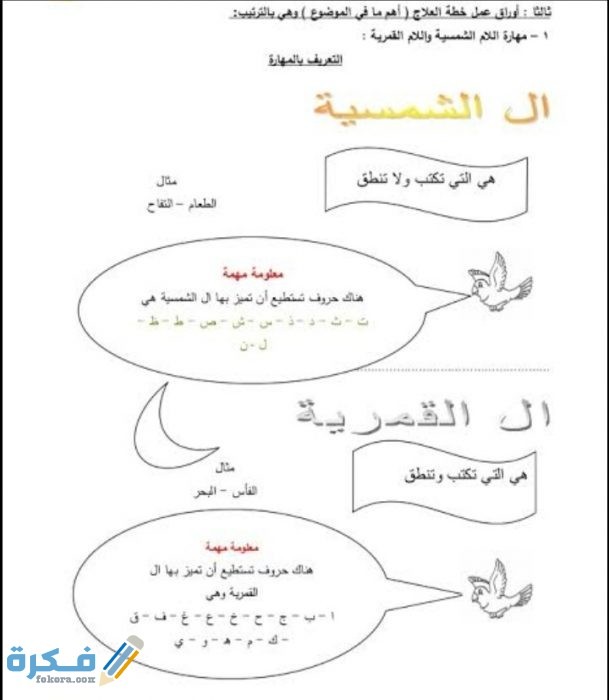 ثالثا : أوراق عمل خطة العلاج ( أهم ما في الموضوع ) وهي بالترتيب:
١ – مهارة اللام الشمسية واللام القمرية :
التعريف بالمهارة
ال الشمسية
هي التي تكتب ولا تنطق
مثال
الطعام – التفاح
معلومة مهمة
هناك حروف تستطيع أن تميز بها ال الشمسية هي
ت – ث – د – ذ – س – ش – ص – ط – ظ –
ل - ن
ال القمرية
هي التي تكتب وتنطق
مثال
الفأس – البحر
معلومة مهمة
هناك حروف تستطيع أن تميز بها ال
القمرية وهي
ا – ب – ج – ح – خ – ع – غ – ف – ق
– ك – م – ه – و – ي
فكرة
fekera.com